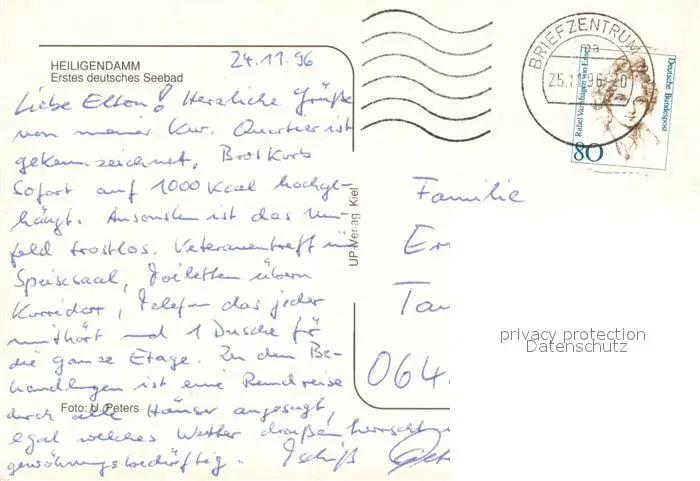 HEILIGENDAMM
Erstes deutsches Seebad
24.11.96
Liebe Eltern! Herzliche Grüße
von meiner Kur. Quartier ist
gekennzeichnet, Brotkorb
sofort auf 1000 Kcal hochge-
hängt. Ansonsten ist das Um-
feld trostlos. Veteranentreff im
Speisesaal, Toiletten übern
Korridor, Telefon das jeder
mithört und 1 Dusche für
die ganze Etage. Zu den Be-
handlungen ist eine Rundreise
durch alle Häuser angesagt,
egal welches Wetter draußen herrscht
gewöhnungsbedürftig. Tschüß
Foto: U. Peters
UP-Verlag Kiel
BRIEFZENTRUM
25.11.96
Rahel Varnhagen von Ense
Deutsche Bundespost
80
Familie
Er
Tau
064
privacy protection
Datenschutz